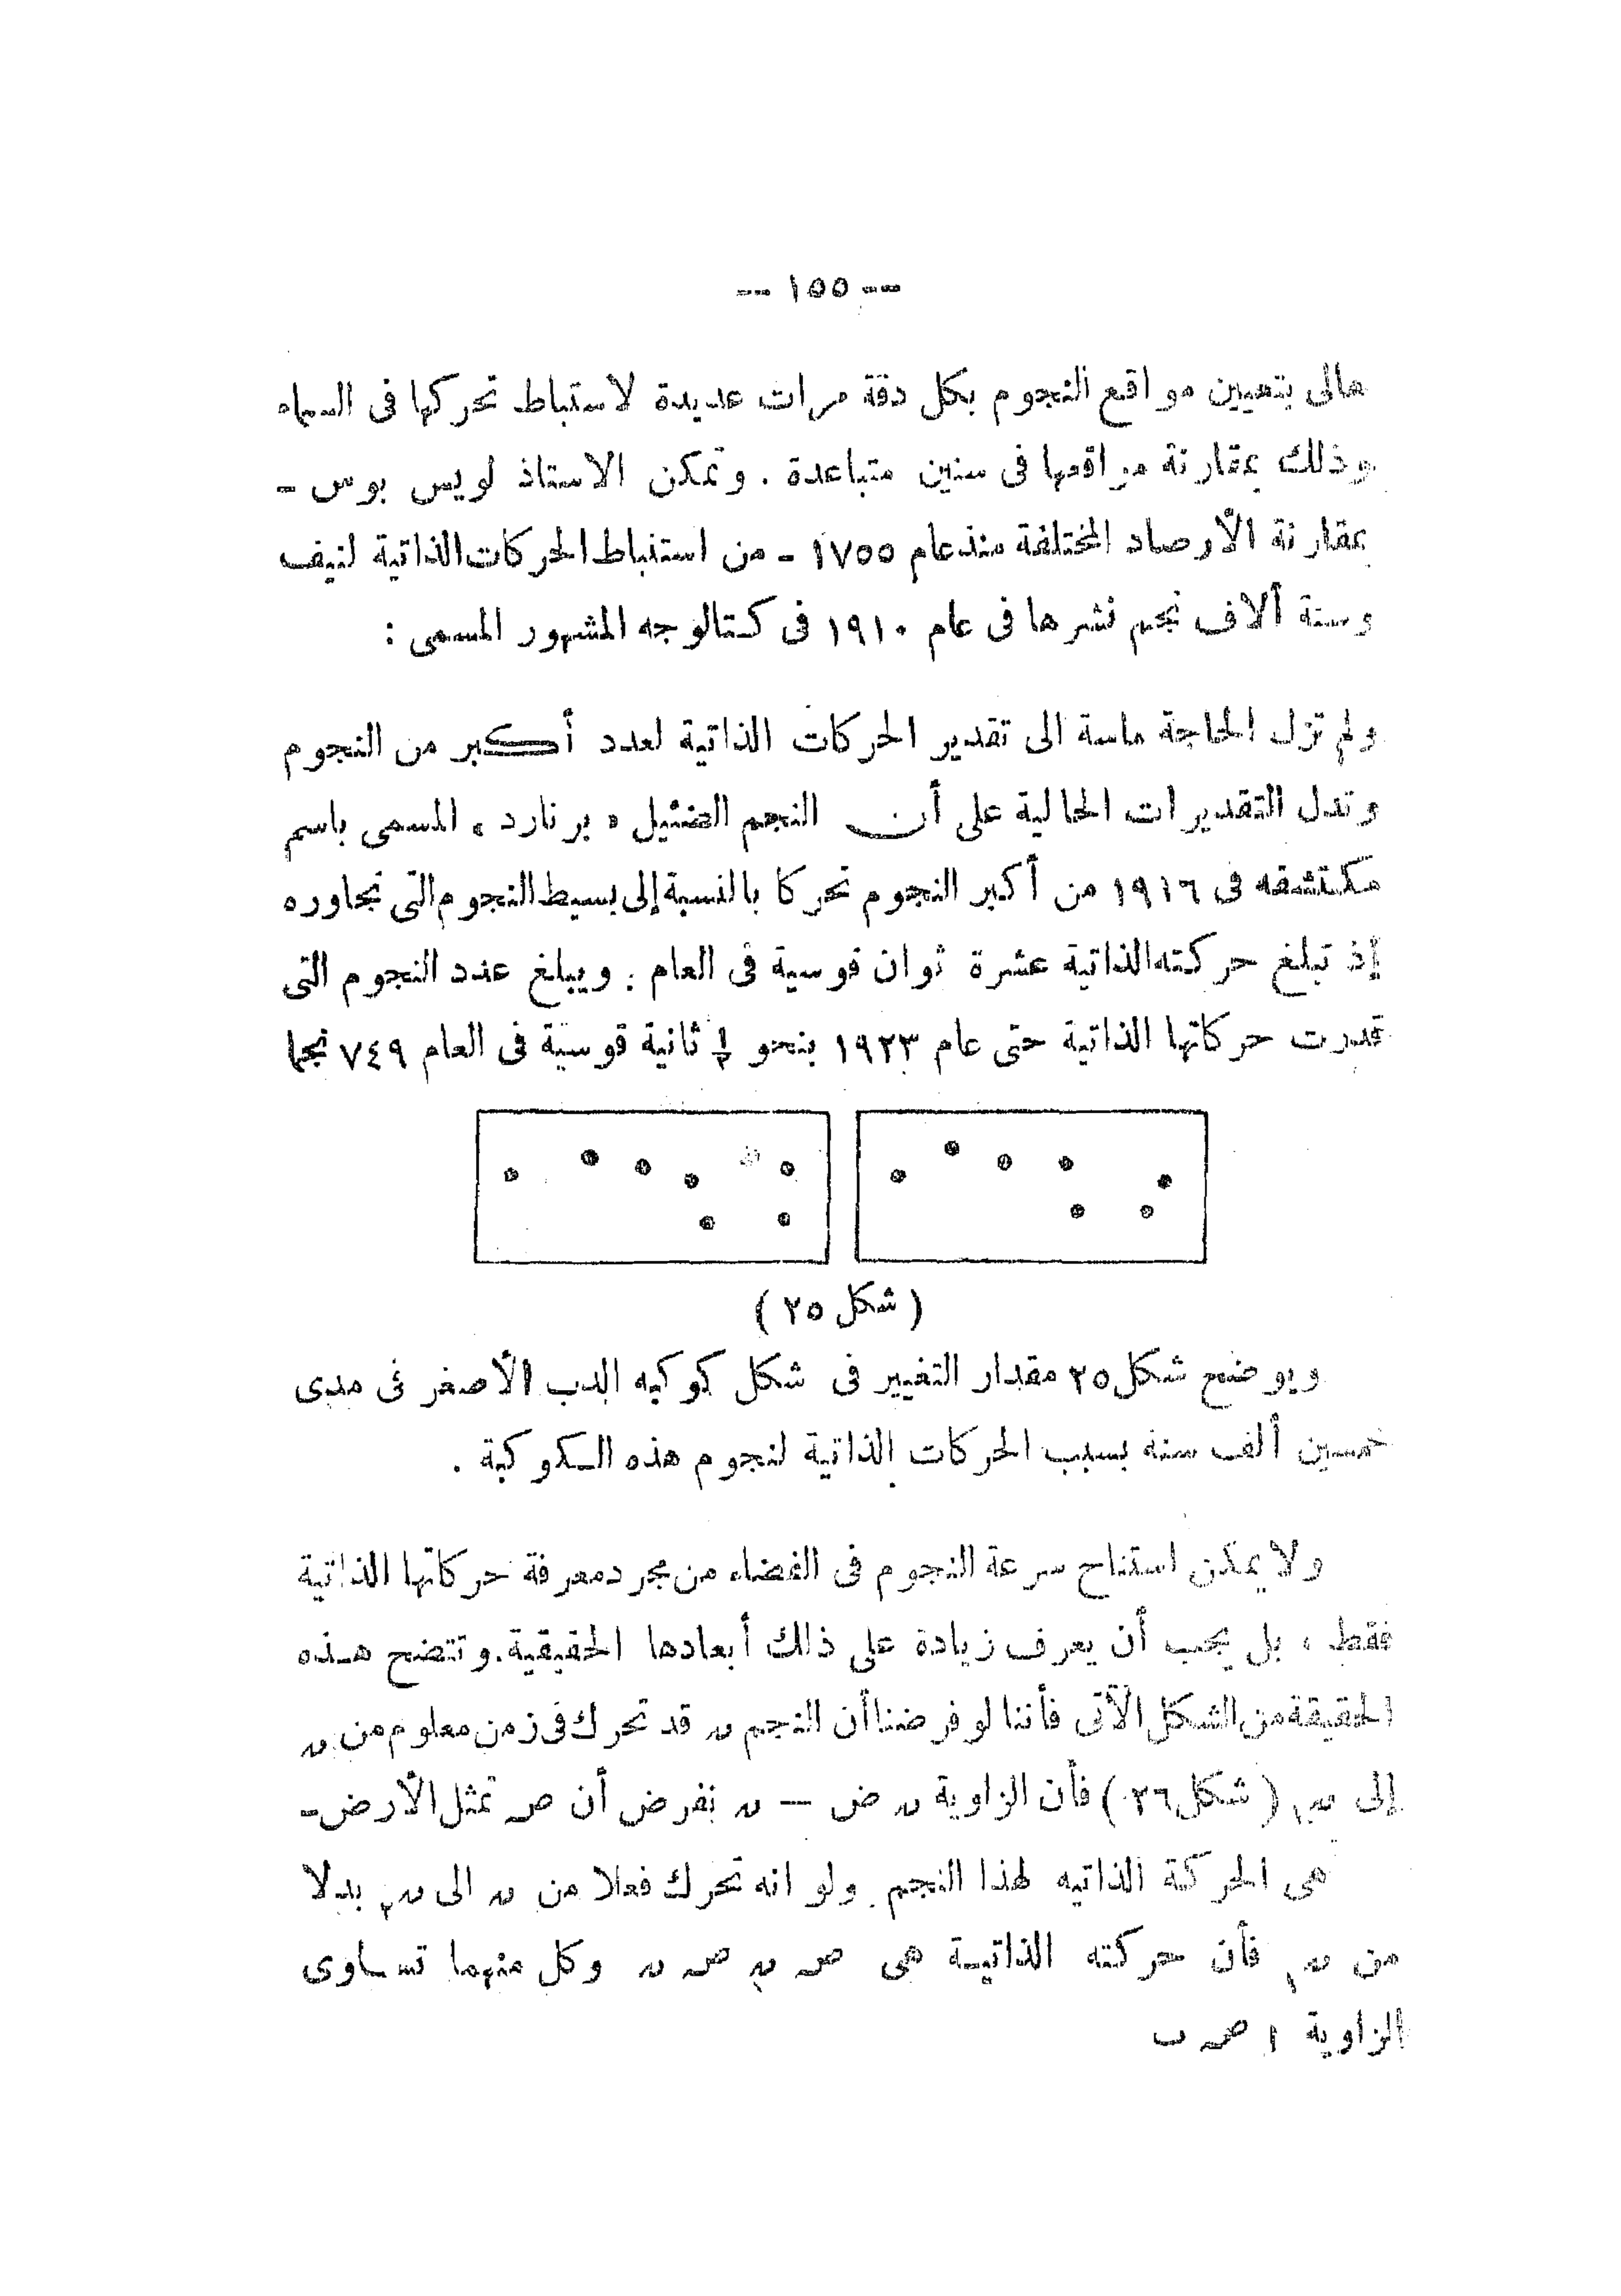 — ١٥٥ —
هالى بتعيين مواقع النجوم بكل دقة مرات عديدة لاستباط تحركها فى السماء
وذلك بمقارنة مواقعها فى سنين متباعدة . وتمكن الاستاذ لويس بوس -
بمقارنة الأرصاد المختلفة منذ عام ١٧٥٥ - من استنباط الحركات الذاتية لنيف
وستة آلاف نجم نشرها فى عام ١٩١٠ فى كتالوجه المشهور المسمى :
ولم تزل الحاجة ماسة الى تقدير الحركات الذاتية لعدد أكبر من النجوم
وتدل التقديرات الحالية على أن النجم الضئيل « برنارد » المسمى باسم
مكتشفه فى ١٩١٦ من أكبر النجوم تحركا بالنسبة إلى بسيط النجوم التى تجاوره
إذ تبلغ حركته الذاتية عشرة ثوان قوسية فى العام . ويبلغ عدد النجوم التى
قدرت حركاتها الذاتية حتى عام ١٩٢٣ بنحو ثانية قوسية فى العام ٧٤٩ نجما
( شكل ٢٥ )
ويوضح شكل ٢٥ مقدار التغيير فى شكل كوكبه الدب الأصغر فى مدى
خمسين ألف سنة بسبب الحركات الذاتية لنجوم هذه الكوكبة .
ولا يمكن استناح سرعة النجوم فى الفضاء من مجرد معرفة حركاتها الذاتية
فقط ، بل يجب أن يعرف زيادة على ذلك أبعادها الحقيقية . وتتضح هذه
الحقيقة من الشكل الآتى فأننا لو فرضنا أن النجم ن قد تحرك فى زمن معلوم من ن
إلى ن١ ( شكل ٢٦ ) فأن الزاوية ن ض — ن نفرض أن ص تمثل الأرض -
هى الحركة الذاتيه لهذا النجم . ولو انه تحرك فعلا من ن الى ن٢ بدلا
من ن١ فأن حركته الذاتية هى ص ن٢ ص ن وكل منهما تساوى
الزاوية ا ص ب